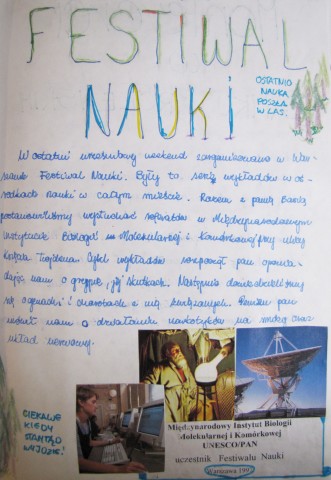 FESTIWAL
NAUKI
OSTATNIO
NAUKA
POSZŁA
W LAS.
W ostatni wrześniowy weekend zorganizowano w War-
szawie Festiwal Nauki. Były to serie wykładów w oś-
rodkach nauki w całym mieście. Razem z panią Basią
postanowiliśmy wysłuchać referatów w Międzynarodowym
Instytucie Biologii Molekularnej i Komórkowej przy ulicy
Księcia Trojdena. Cykl wykładów rozpoczął pan opowia-
dając nam o grypie, jej skutkach. Następnie dowiedzieliśmy
się o chorobach z nią związanych. Pan
mówił nam o działaniu narkotyków na mózg oraz
układ nerwowy.
CIEKAWE
KIEDY
STAMTĄD
WYJDZIE?
Międzynarodowy Instytut Biologii
Molekularnej i Komórkowej
UNESCO/PAN
uczestnik Festiwalu Nauki
Warszawa 199